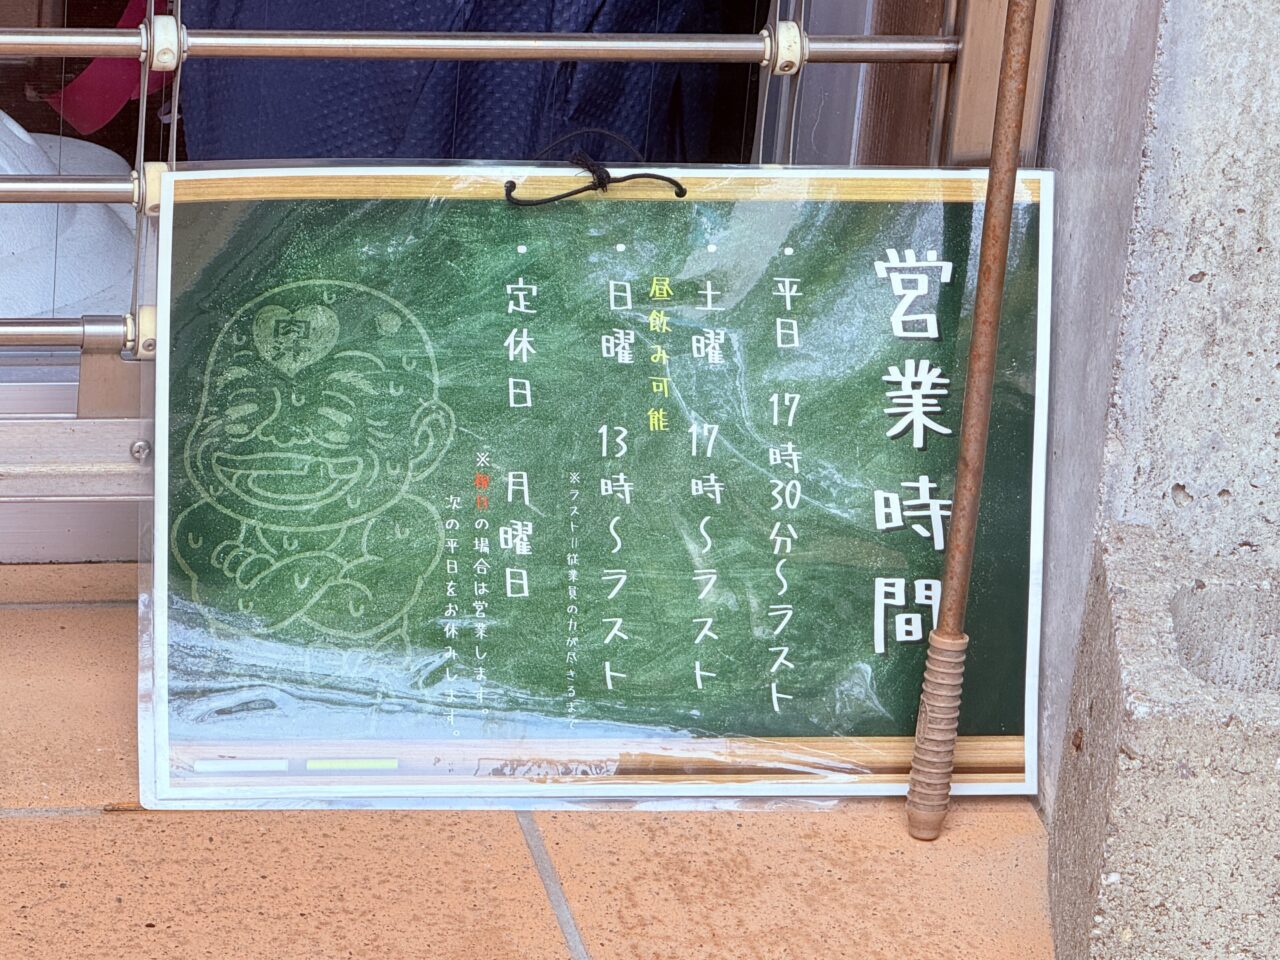 営業時間
・平日 17時30分～ラスト
・土曜 17時～ラスト
昼飲み可能
・日曜 13時～ラスト
※ラスト＝従業員の力が尽きるまで
・定休日 月曜日
※祝日の場合は営業します。
次の平日をお休みします。
肉